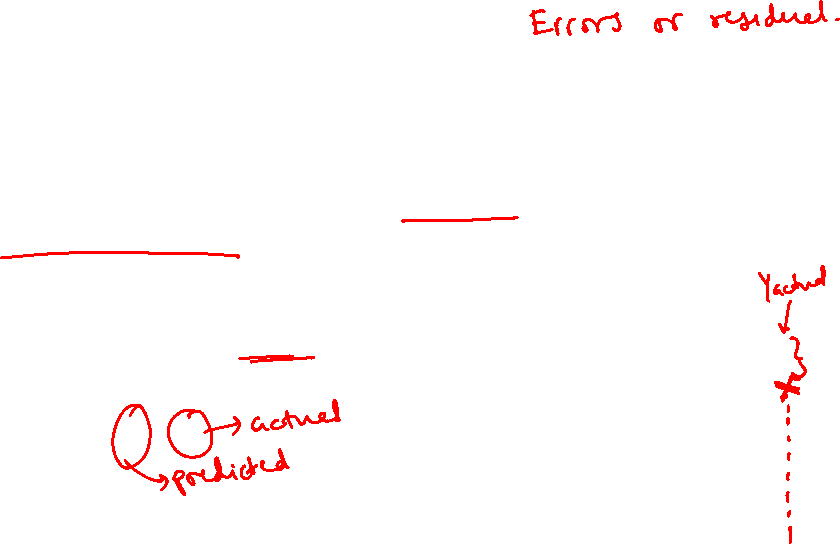 Errors or residual.
Yactual
actual
predicted